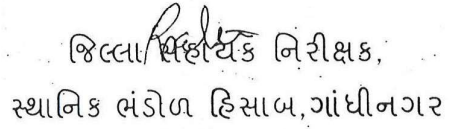 જિલ્લા સહાયક નિરીક્ષક,
સ્થાનિક ભંડોળ હિસાબ,ગાંધીનગર